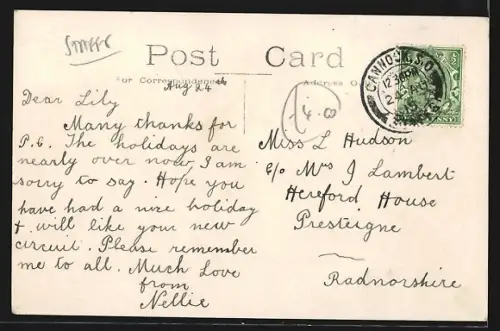 STAFFS
Post Card
For Correspondence
Address O
Aug 24th
Dear Lily
Many thanks for
P.C. The holidays are
nearly over now, I am
sorry to say. Hope you
have had a nice holiday
+ will like your new
circuit. Please remember
me to all. Much Love
from
Nellie
Miss L Hudson
c/o Mrs J Lambert
Hereford House
Presteigne
Radnorshire
CANNOCK S.O
12 30PM
AU
15